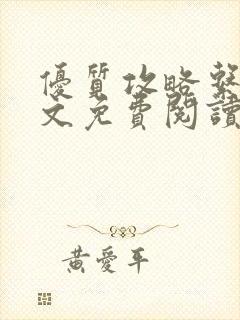 優質攻略系
文免費閱讀
黃愛平